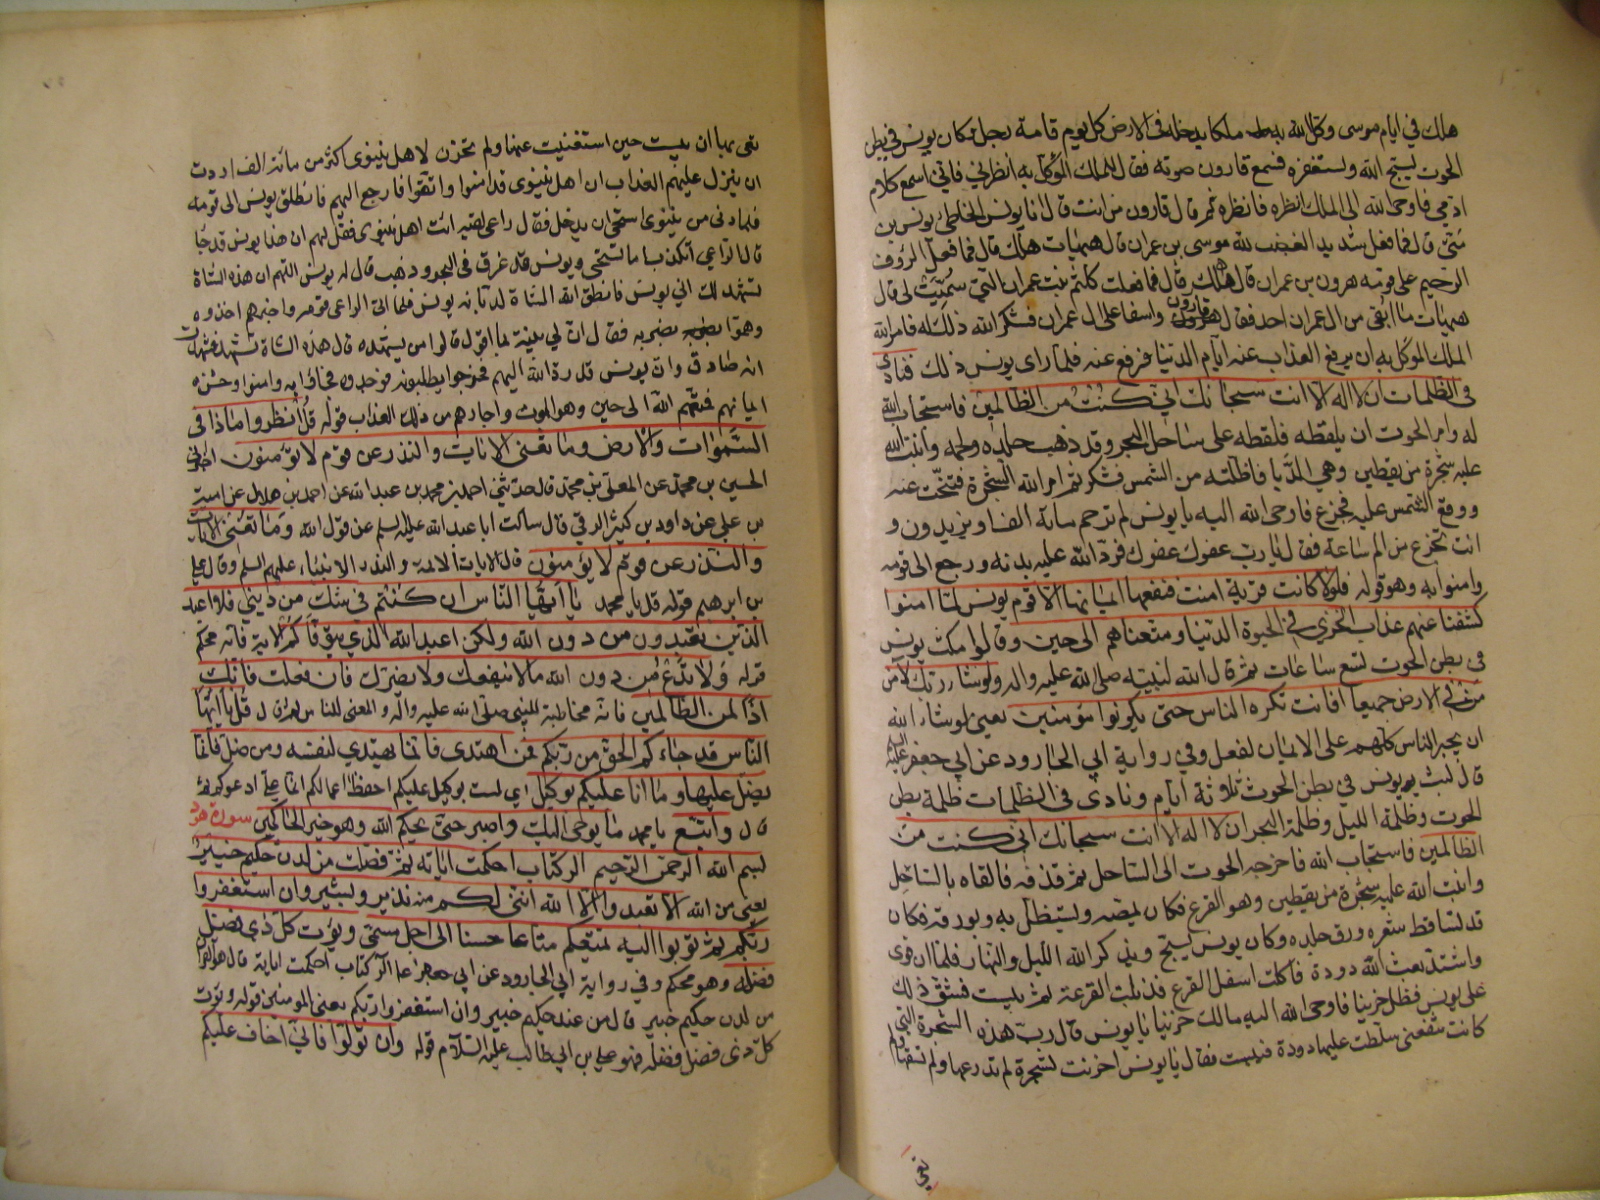 هلك في ايام موسى وكل الله به ملكا يدخله في الارض كل يوم قامة رجل فكان يونس في بطن
الحوت يسبح الله ويستغفره فسمع قارون صوته فقال للملك الموكل به انظرني فاني اسمع كلام
ادمي فاوحى الله الى الملك انظره فانظره ثم قال قارون من انت قال انا يونس الخاطئ يونس بن
متى قال فما فعل شديد الغضب لله موسى بن عمران قال هيهات هلك قال فما فعل الرؤف
الرحيم على قومه هرون بن عمران قال هلك قال فما فعلت كلثم بنت عمران التي سميت لي قال
هيهات ما ابقى من ال عمران احد فقال قارون واسفا على ال عمران فشكر الله ذلك له فامر الله
الملك الموكل به ان يرفع العذاب عنه ايام الدنيا فرفع عنه فلما راى يونس ذلك فنادى
في الظلمات ان لا اله الا انت سبحانك اني كنت من الظالمين فاستجاب الله
له وامر الحوت ان يلفظه فلفظه على ساحل البحر وقد ذهب جلده ولحمه وانبت الله
عليه شجرة من يقطين وهي الدبا فاظلته من الشمس فشكر ثم امر الله الشجرة فتنحت عنه
ووقع الشمس عليه فجزع فاوحى الله اليه يا يونس لم ترحم مائة الف او يزيدون و
انت تجزع من الم ساعة فقال يا رب عفوك عفوك فرد الله عليه بدنه ورجع الى قومه
وامنوا به وهو قوله فلولا كانت قرية امنت فنفعها ايمانها الا قوم يونس لما امنوا
كشفنا عنهم عذاب الخزي في الحيوة الدنيا ومتعناهم الى حين وقالوا مكث يونس
في بطن الحوت تسع ساعات ثم قال الله لنبيه صلى الله عليه واله ولو شاء ربك لآمن
من في الارض جميعا افانت تكره الناس حتى يكونوا مؤمنين يعني لو شاء الله
ان يجبر الناس كلهم على الايمان لفعل وفي رواية ابي الجارود عن ابي جعفر عليه السلام
قال لبث يونس في بطن الحوت ثلاثة ايام ونادى في الظلمات ظلمة بطن
الحوت وظلمة الليل وظلمة البحر ان لا اله الا انت سبحانك اني كنت من
الظالمين فاستجاب الله فاخرجه الحوت الى الساحل ثم قذفه فالقاه بالساحل
وانبت الله عليه شجرة من يقطين وهو القرع فكان يمصه ويستظل به وبورقه فكان
قد تساقط شعره ورق جلده وكان يونس يسبح ويذكر الله الليل والنهار فلما ان قوى
واشتد بعث الله دودة فاكلت اسفل القرع فذبلت القرعة ثم يبست فشق ذلك
على يونس فظل حزينا فاوحى الله اليه مالك حزينا يا يونس قال رب هذه الشجرة التي
كانت تنفعني سلطت عليها دودة فيبست فقال يا يونس احزنت لشجرة لم تزرعها ولم تسقها ولم
تعي
تعى بها ان يبست حين استغنيت عنها ولم تحزن لاهل نينوى اكثر من مائة الف اردت
ان ينزل عليهم العذاب ان اهل نينوى قد امنوا واتقوا فارجع اليهم فانطلق يونس الى قومه
فلما دنى من نينوى استحى ان يدخل فقال لراعي لقيه ائت اهل نينوى فقل لهم ان هذا يونس قد جاء
قال الراعي اتكذب اما تستحي ويونس قد غرق في البحر وذهب قال له يونس اللهم ان هذه الشاة
تشهد لك اني يونس فانطق الله الشاة له بانه يونس فلما اتى الراعي قومه واخبرهم اخذوه
وهموا بضربه فقال ان لي بينة بما اقول قالوا من يشهد قال هذه الشاة تشهد فشهدت
انه صادق وان يونس قد رده الله اليهم فخرجوا يطلبونه فوجدوه فجاؤا به وامنوا وحسنوا
ايمانهم فمتعهم الله الى حين وهو الموت واجارهم من ذلك العذاب قوله قل انظروا ماذا في
السموات والارض وما تغني الايات والنذر عن قوم لا يؤمنون اخبرني
الحسين بن محمد عن المعلى بن محمد قال حدثني احمد بن محمد بن عبد الله عن احمد بن هلال عن امية
بن علي عن داود بن كثير الرقي قال سالت ابا عبد الله عليه السلم عن قول الله وما تغني الايات
والنذر عن قوم لا يؤمنون قال الايات الائمة والنذر الانبياء عليهم السلم وقال علي
بن ابرهيم قوله قل يا محمد يا ايها الناس ان كنتم في شك من ديني فلا اعبد
الذين تعبدون من دون الله ولكن اعبد الله الذي يتوفاكم الاية فانه محكم
قوله ولا تدع من دون الله ما لا ينفعك ولا يضرك فان فعلت فانك
اذا لمن الظالمين فانه مخاطبة للنبي صلى الله عليه واله والمعنى للناس ثم قال قل يا ايها
الناس قد جاءكم الحق من ربكم فمن اهتدى فانما يهتدي لنفسه ومن ضل فانما
يضل عليها وما انا عليكم بوكيل اي لست بوكيل عليكم احفظ اعمالكم انما علي ادعوكم ثم
قال واتبع يا محمد ما يوحى اليك واصبر حتى يحكم الله وهو خير الحاكمين سورة هود
بسم الله الرحمن الرحيم الر كتاب احكمت اياته ثم فصلت من لدن حكيم خبير
يعني من الله الا تعبدوا الا الله انني لكم منه نذير وبشير وان استغفروا
ربكم ثم توبوا اليه يمتعكم متاعا حسنا الى اجل مسمى ويؤت كل ذي فضل
فضله وهو محكم وفي رواية ابي الجارود عن ابي جعفر الر كتاب احكمت اياته قال هو القرآن
من لدن حكيم خبير قال من عند حكيم خبير وان استغفروا ربكم يعني المؤمنين قوله ويؤت
كل ذي فضل فضله فهو علي بن ابي طالب عليه السلام قوله وان تولوا فاني اخاف عليكم